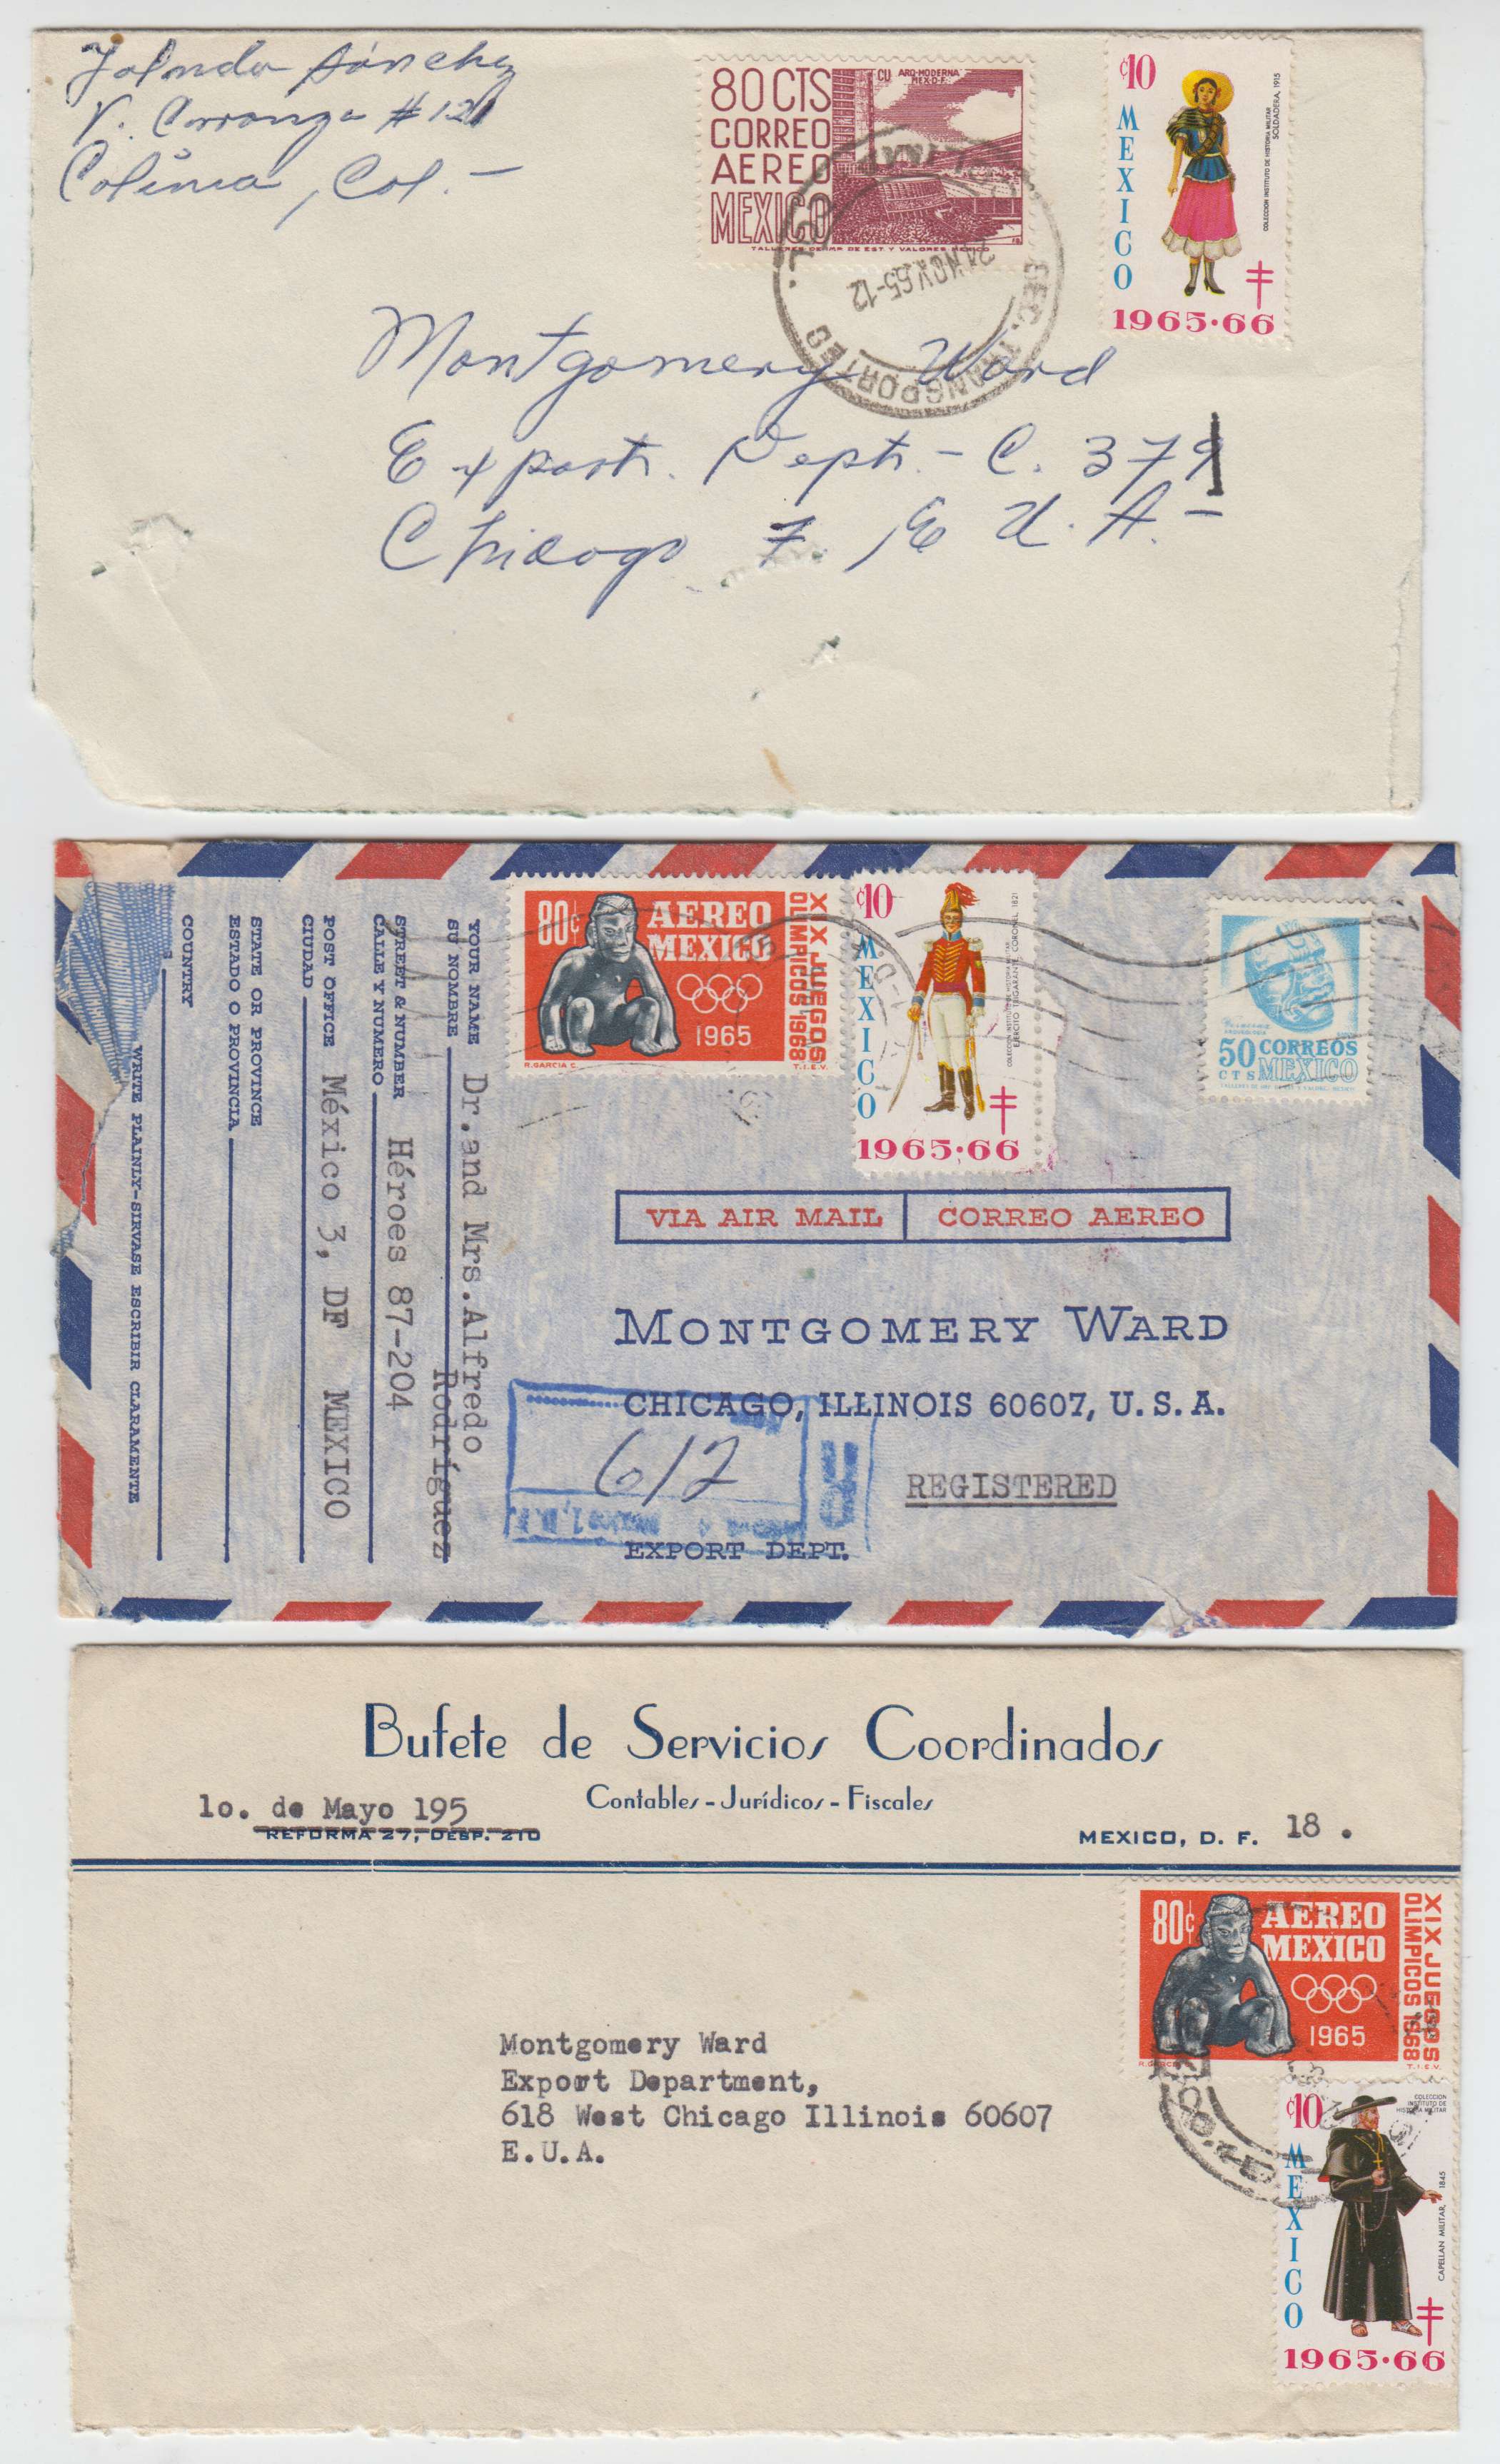 Yolanda Sánchez
V. Carranza # 121
Colima, Col. -
80 CTS
CORREO
AEREO
MEXICO
CU ARQ-MODERNA
MEX-D-F.
TALLERES DE IMP. DE EST. Y VALORES MEXICO
SEC. TRANSPORTES
24 NOV. 65-12
COL.
¢10
MEXICO
COLECCION INSTITUTO DE HISTORIA MILITAR
SOLDADERA, 1915
1965·66
Montgomery Ward
Export. Dept. - C. 379
Chicago 7, E U. A. -
80¢
AEREO
MEXICO
1965
XIX JUEGOS
OLIMPICOS 1968
R.GARCIA C.
T.I.E.V.
¢10
MEXICO
COLECCION INSTITUTO DE HISTORIA MILITAR
EJERCITO TRIGARANTE, CORONEL, 1821
1965·66
50 CORREOS
CTS MEXICO
YOUR NAME
SU NOMBRE
Dr.and Mrs.Alfredo
Rodríguez
STREET & NUMBER
CALLE Y NUMERO
Héroes 87-204
POST OFFICE
CIUDAD
México 3, DF MEXICO
STATE OR PROVINCE
ESTADO O PROVINCIA
COUNTRY
WRITE PLAINLY-SIRVASE ESCRIBIR CLARAMENTE
VIA AIR MAIL CORREO AEREO
MONTGOMERY WARD
CHICAGO, ILLINOIS 60607, U. S. A.
612
R
REGISTERED
EXPORT DEPT.
Bufete de Servicios Coordinados
Contables - Jurídicos - Fiscales
1o. de Mayo 195
REFORMA 27, DESP. 210
MEXICO, D. F. 18 .
80¢
AEREO
MEXICO
1965
XIX JUEGOS
OLIMPICOS 1968
T.I.E.V.
Montgomery Ward
Export Department,
618 West Chicago Illinois 60607
E.U.A.
¢10
MEXICO
COLECCION
INSTITUTO DE
HISTORIA MILITAR
CAPELLAN MILITAR, 1845
1965·66